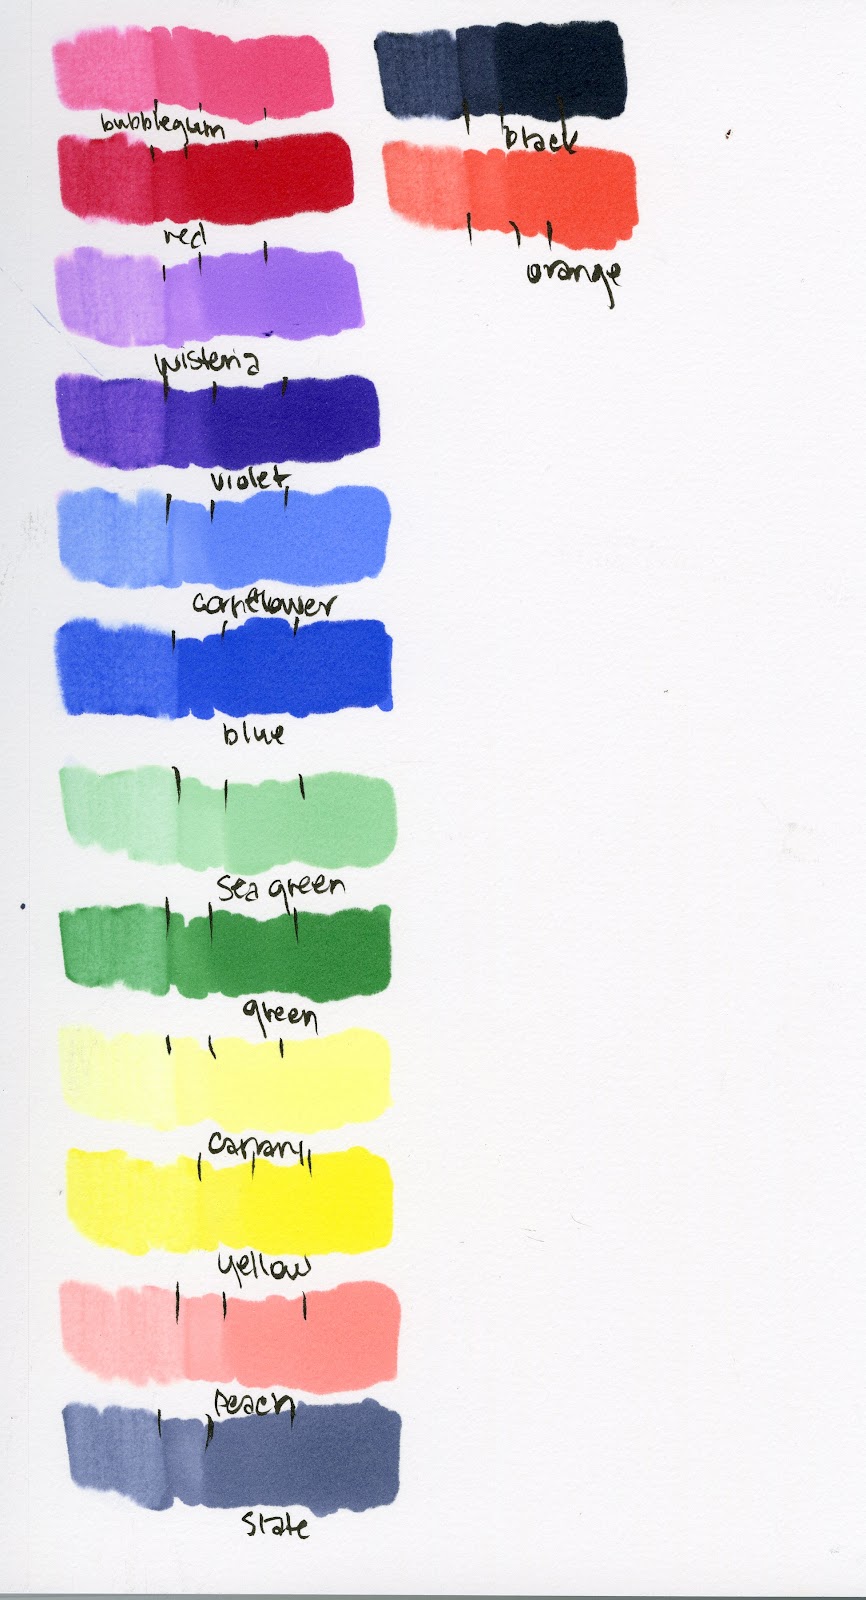 bubblegum
red
wisteria
violet
cornflower
blue
Sea green
green
canary
yellow
Peach
Slate
black
orange